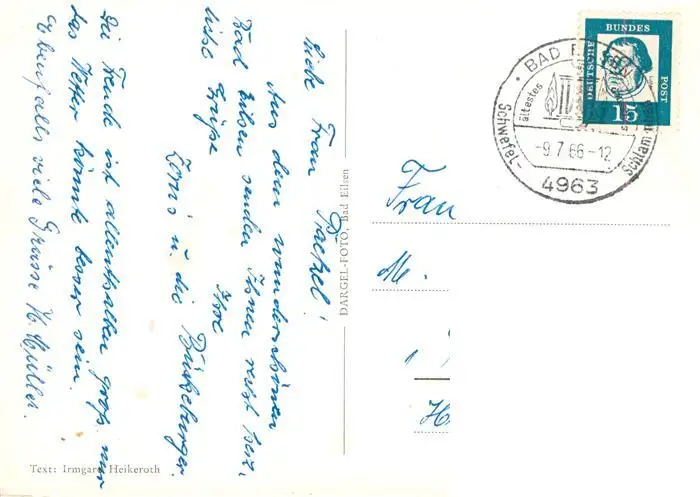 Liebe Frau Bäckel!
Aus dem wunderschönen
Bad Eilsen senden Ihnen recht herz-
liche Grüße Ihre
u. die Bückeburger.
Die Freude ist allenthalben groß nur
das Wetter könnte besser sein.
Ebenfalls viele Grüsse H. Müller.
Text: Irmgard Heikeroth
DARGEL-FOTO, Bad Eilsen
DEUTSCHE BUNDES POST
15
BAD
ältestes
Schwefel- Schlamm
-9.7.66-12
4963
Frau
M.
H